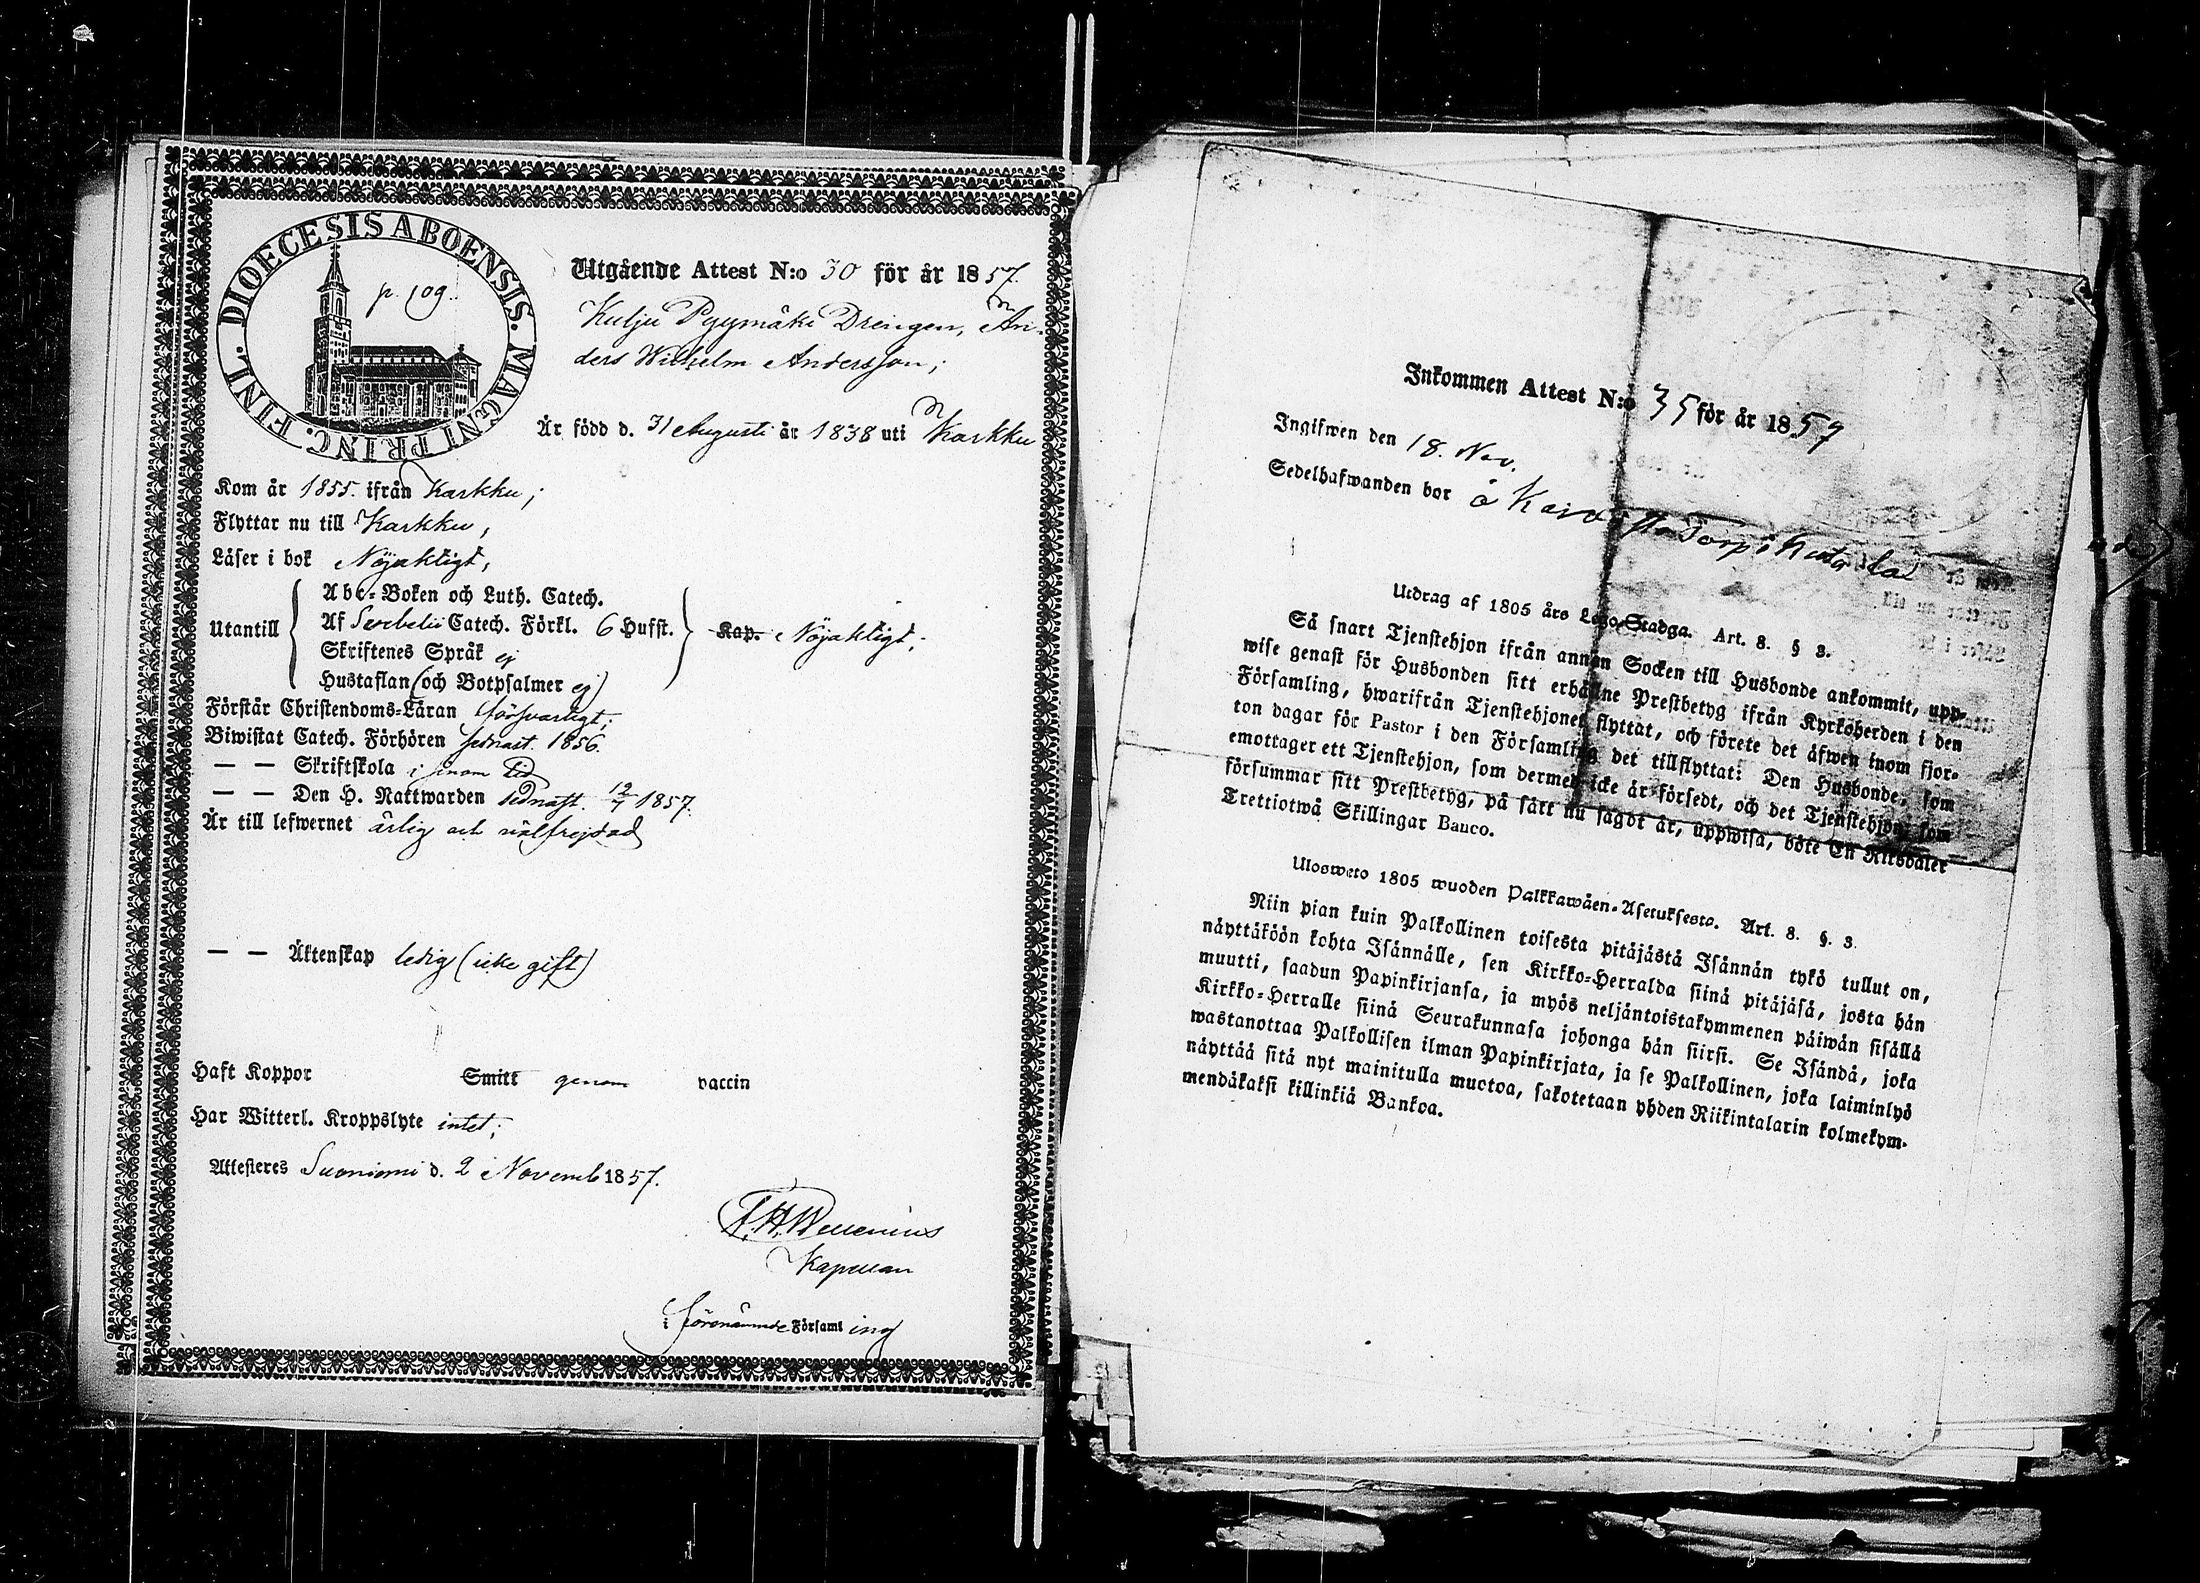 DIOECESIS ABOENSIS. MAGNI PRINC. FINL.
p. 109.
Utgående Attest N:o 30 för år 1857.
Kulju Pyymäki Drengen, An-
ders Wilhelm Andersson;
Är född d. 31 Augusti år 1838 uti Karkku
Kom år 1855. ifrån Karkku;
Flyttar nu till Karkku,
Läser i bok Nöjaktigt,
Utantill
Abc-Boken och Luth. Catech.
Af Serbelii Catech. Förkl. 6 Hufst.
Skriftenes Språk ej
Hustaflan (och Botpsalmer ej)
Kap. Nöjaktigt;
Förstår Christendoms-Läran försvarligt;
Biwistat Catech. Förhören sednast. 1856.
— — Skriftskola i sinom tid
— — Den H. Nattwarden sednast. 12/7 1857.
Är till lefwernet ärlig och välfrejdad
— — Äktenskap ledig (icke gift)
Haft Koppor Smitt genom vaccin
Har Witterl. Kroppslyte intet;
Attesteres Suoniemi d. 2 Novemb 1857.
Kapellan
i förenämnde Församl ing
Inkommen Attest N:o 35 för år 1857
Ingifwen den 18. Nov.
Sedelhafwanden bor å torp i
Utdrag af 1805 års Lego-Stadga. Art. 8. § 3.
Så snart Tjenstehjon ifrån annan Socken till Husbonde ankommit, upp-
wise genast för Husbonden sitt erhållne Prestbetyg ifrån Kyrkoherden i den
Församling, hwarifrån Tjenstehjonet flyttat, och förete det äfwen inom fjor-
ton dagar för Pastor i den Församling det tillflyttat: Den Husbonde, som
emottager ett Tjenstehjon, som dermed icke är försedt, och det Tjenstehjon, som
försummar sitt Prestbetyg, på sätt nu sagdt är, uppwisa, böte En Riksdaler
Trettiotwå Skillingar Banco.
Ulosweto 1805 wuoden Palkkawäen-Asetuksesta. Art. 8. §. 3.
Niin pian kuin Palkollinen toisesta pitäjästä Isännän tykö tullut on,
näyttäköön kohta Isännälle, sen Kirkko-Herralda siinä pitäjäsä, josta hän
muutti, saadun Papinkirjansa, ja myös neljäntoistakymmenen päiwän sisällä
Kirkko-Herralle siinä Seurakunnasa johonga hän siirsi. Se Isändä, joka
wastanottaa Palkollisen ilman Papinkirjata, ja se Palkollinen, joka laiminlyö
näyttää sitä nyt mainitulla muotoa, sakotetaan yhden Riikintalarin kolmekym-
mendäkaksi killinkiä Bankoa.